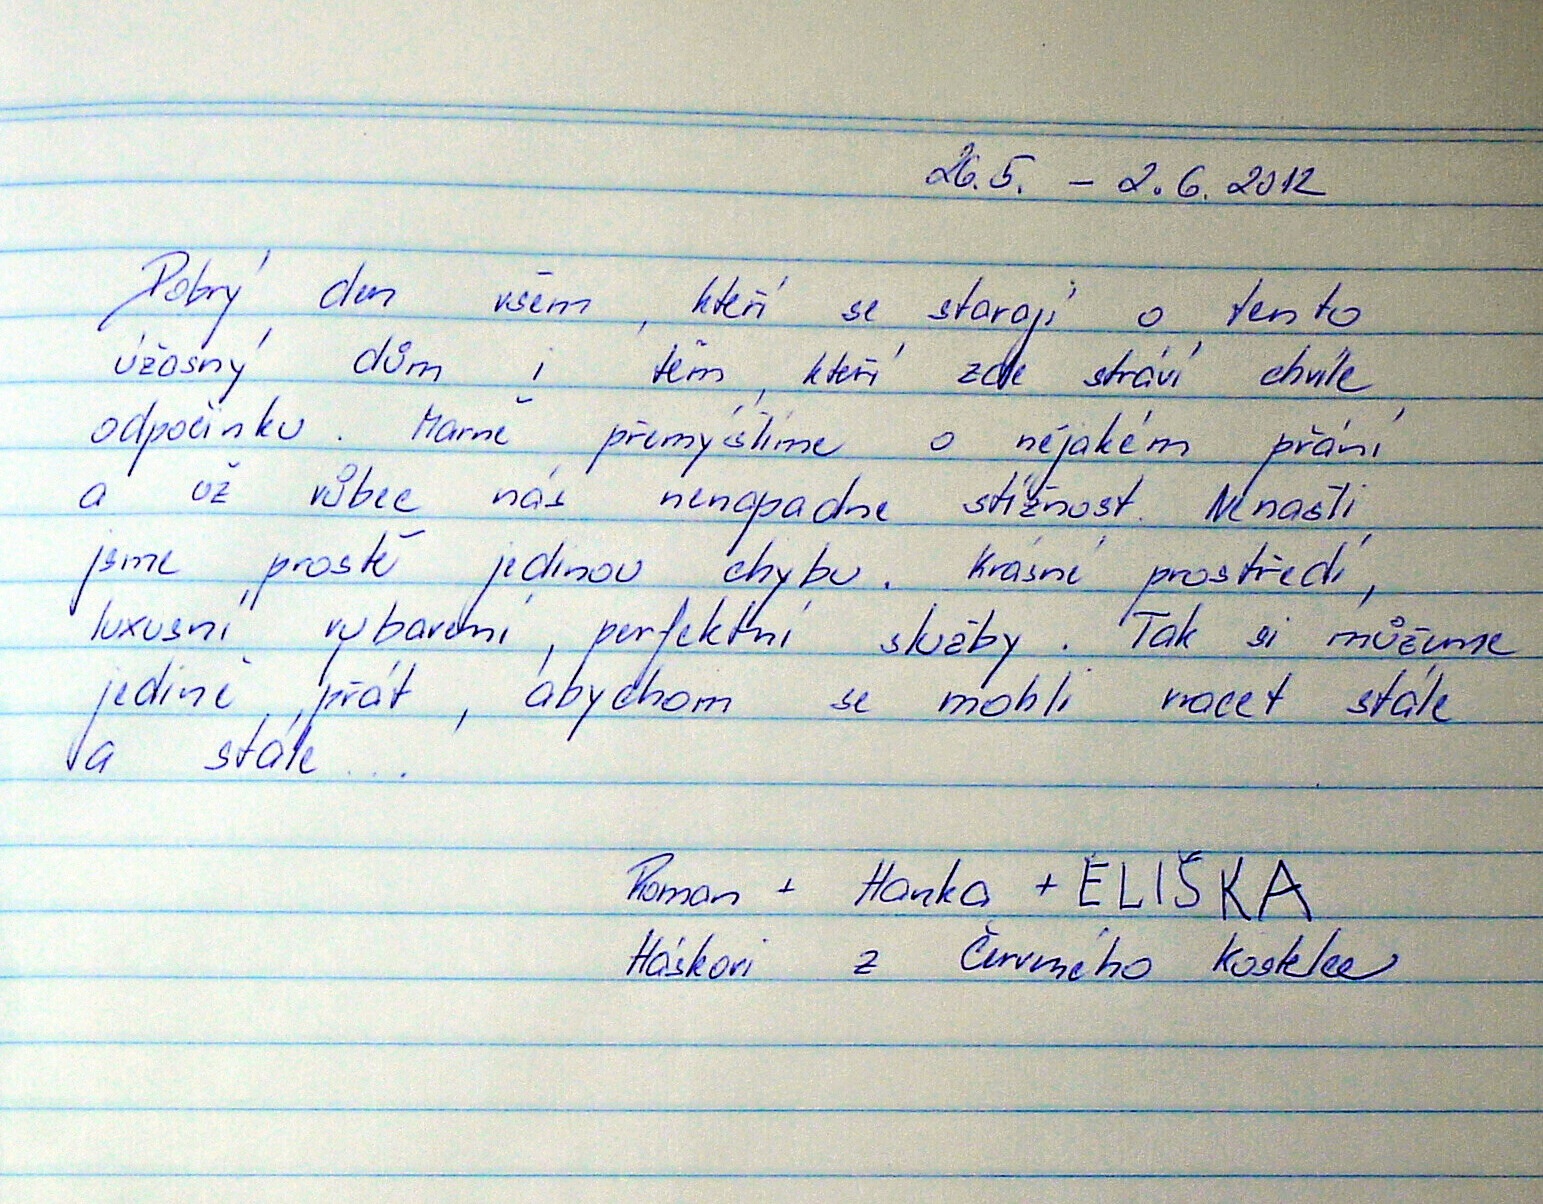 26.5. – 2.6. 2012
Dobrý den všem, kteří se starají o tento
úžasný dům i těm, kteří zde stráví chvíle
odpočinku. Marně přemýšlíme o nějakém přání
a už vůbec nás nenapadne stížnost. Nenašli
jsme prostě jedinou chybu. Krásné prostředí,
luxusní vybavení, perfektní služby. Tak si můžeme
jedině přát, abychom se mohli vracet stále
a stále...
Roman + Hanka + ELIŠKA
Háskovi z Červeného Kostelce